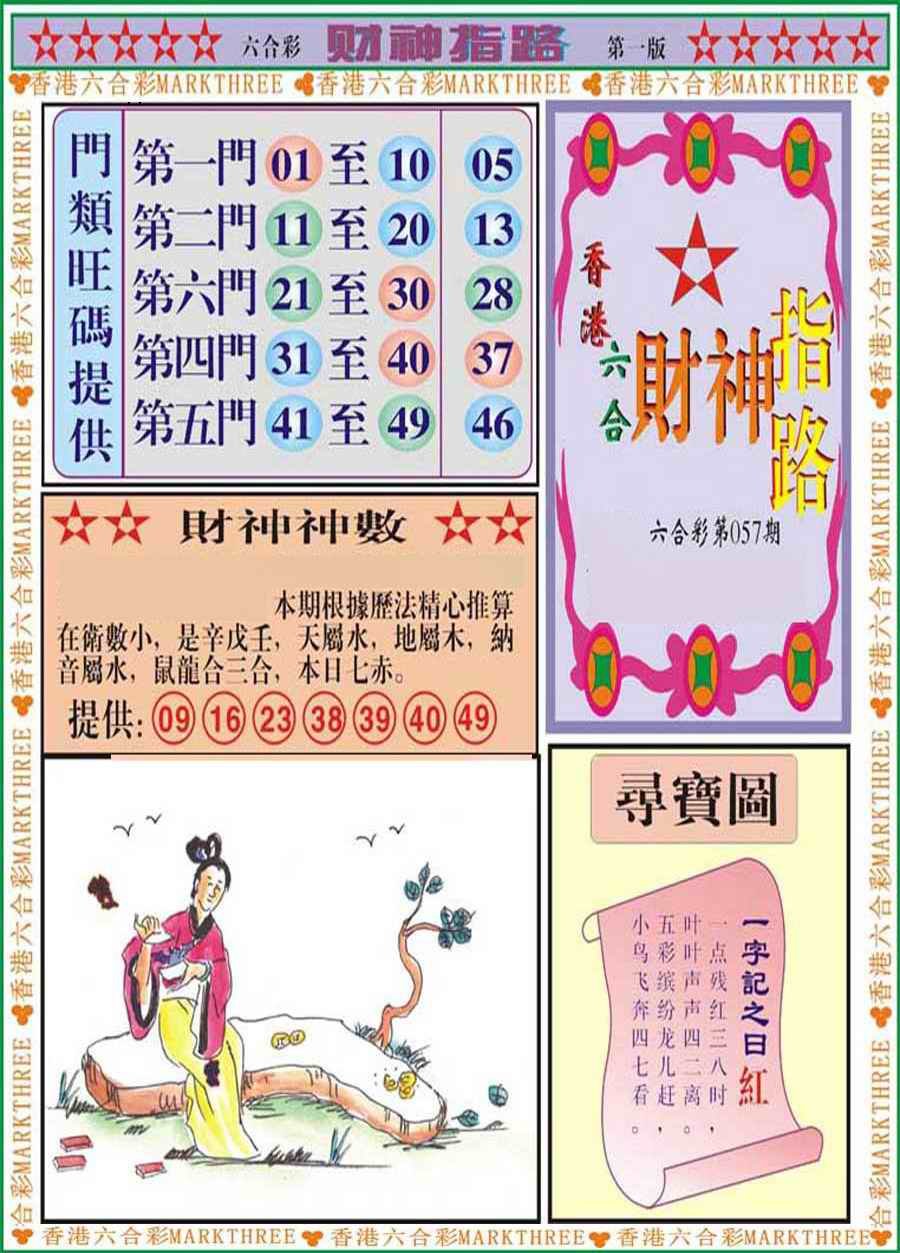 六合彩 财神指路 第一版
香港六合彩MARKTHREE 香港六合彩MARKTHREE 香港六合彩MARKTHREE
香港六合彩MARKTHREE 香港六合彩MARKTHREE 香港六合彩MARKTHREE 香港六合彩MARKTHREE
門類旺碼提供
第一門 01 至 10 05
第二門 11 至 20 13
第六門 21 至 30 28
第四門 31 至 40 37
第五門 41 至 49 46
香港六合
財神指路
六合彩第057期
財神神數
本期根據歷法精心推算
在術數小，是辛戊壬，天屬水，地屬木，納
音屬水，鼠龍合三合，本日七赤。
提供: 09 16 23 38 39 40 49
尋寶圖
一字記之日紅
一点残红三八时，
叶叶声声四二离。
五彩缤纷龙儿赶，
小鸟飞奔四七看。
香港六合彩MARKTHREE 香港六合彩MARKTHREE 香港六合彩MARKTHREE 香港六合彩MARKTHREE
香港六合彩MARKTHREE 香港六合彩MARKTHREE 香港六合彩MARKTHREE